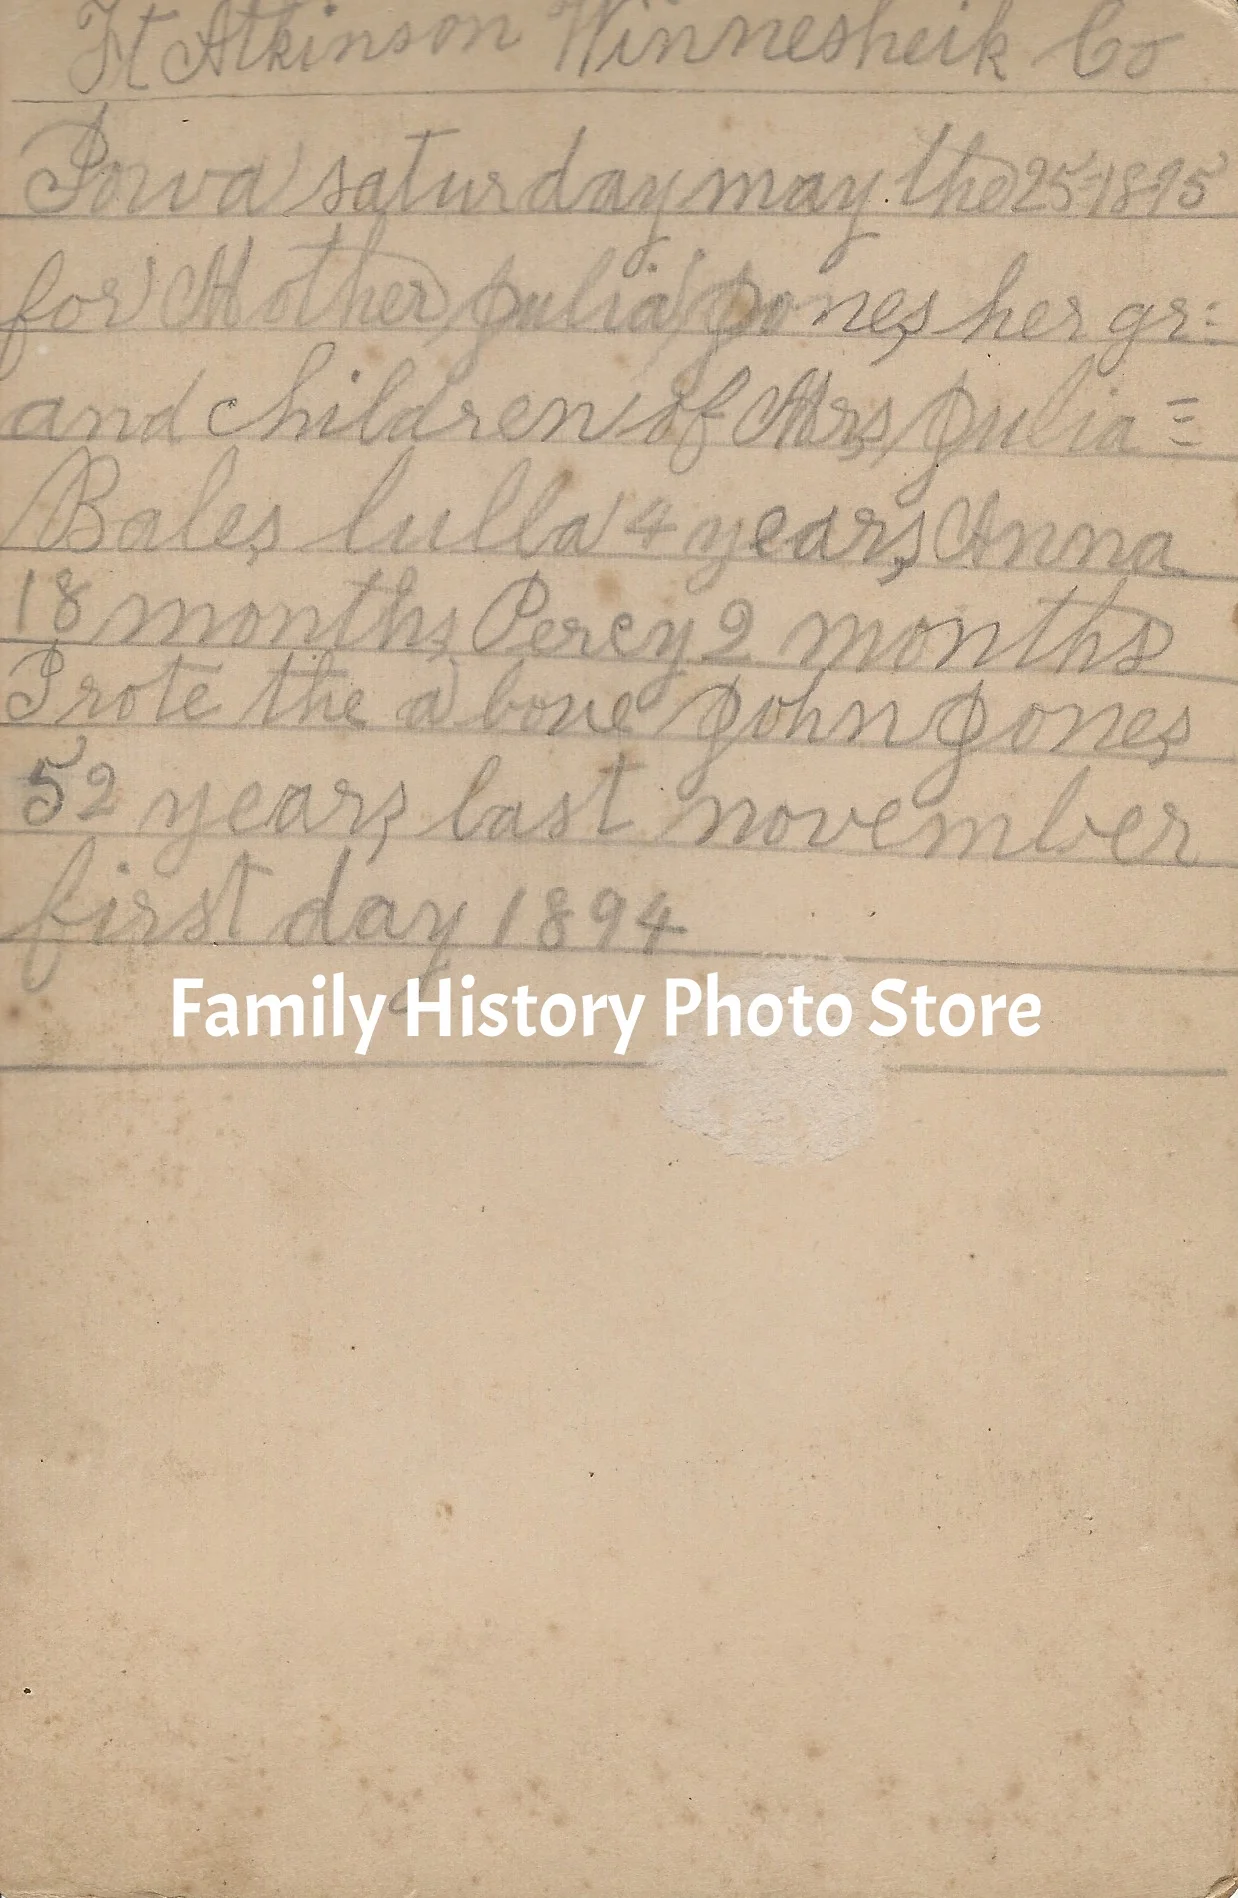 Ft Atkinson Winnesheik Co
Iowa saturday may the 25-1895
for Mother Julia Jones, her gr=
and children of Mrs, Julia =
Bales, lulla 4 years, Anna
18 months, Percy 2 months
I rote the a bove John Jones,
52 years, last november
first day 1894
Family History Photo Store